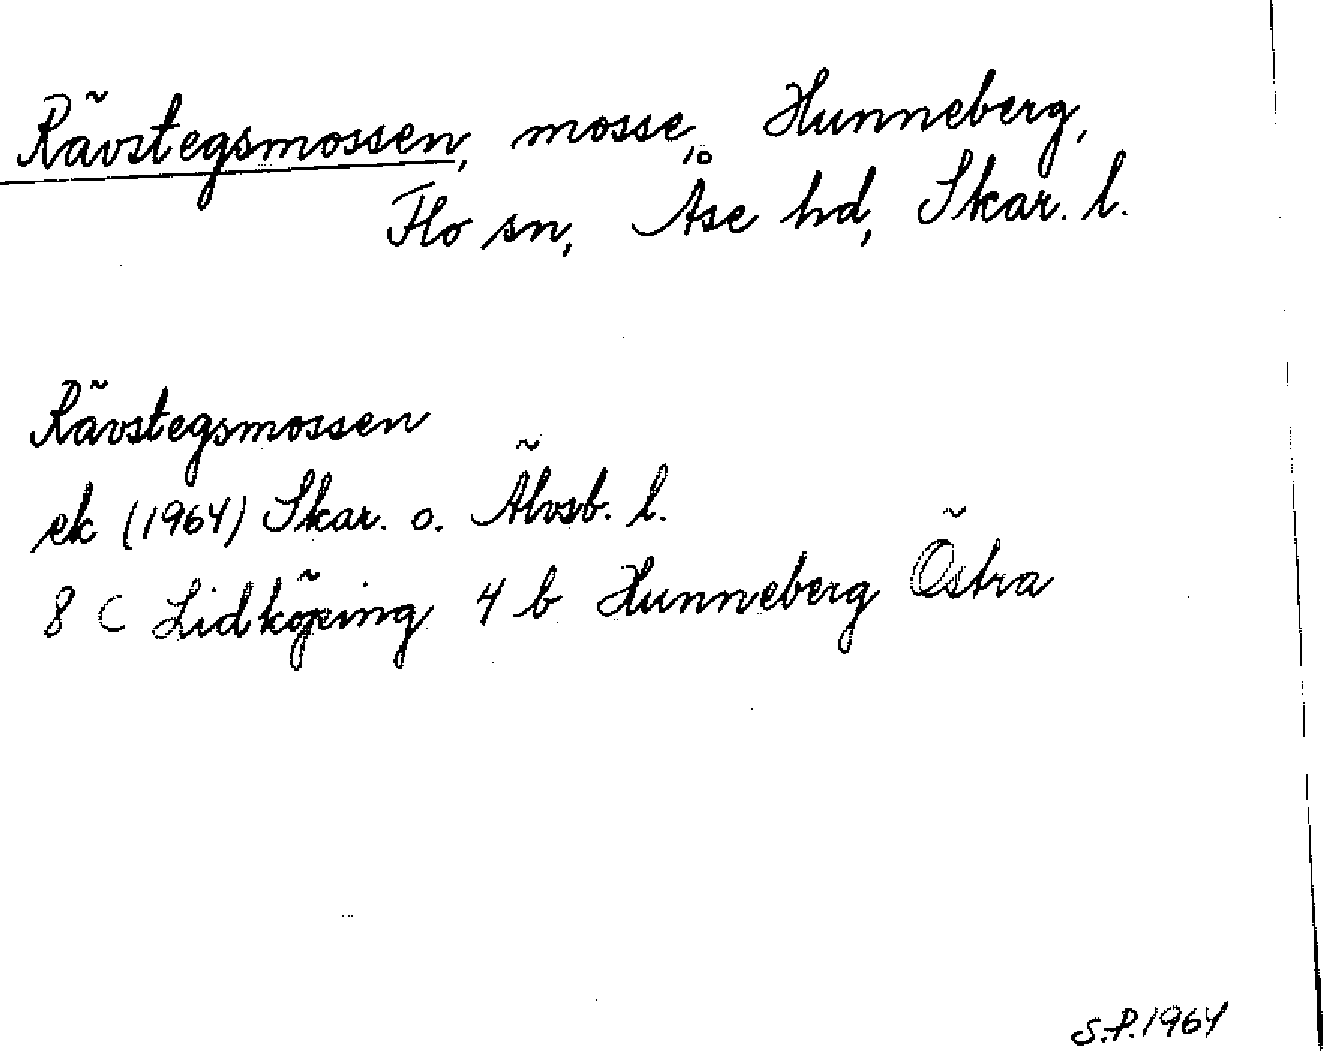 Rävstegsmossen, mosse, Hunneberg,
Flo sn, Åse hd, Skar. l.
Rävstegsmossen
ek (1964) Skar. o. Älvsb. l.
8 C Lidköping 4 b Hunneberg Östra
S.P. 1964